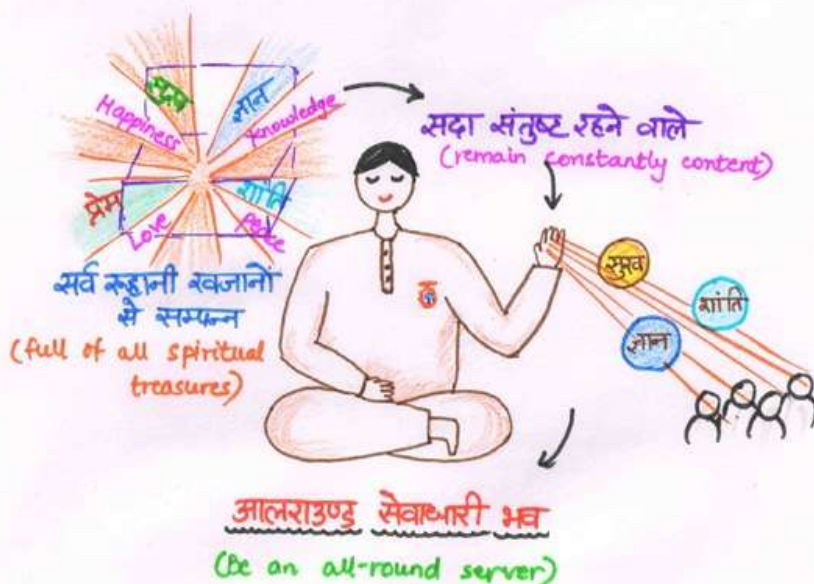 सुख
Happiness
ज्ञान
Knowledge
प्रेम
Love
शांति
Peace
सर्व रूहानी खजानों
से सम्पन्न
(full of all spiritual
treasures)
सदा संतुष्ट रहने वाले
(remain constantly content)
सुख
शांति
ज्ञान
आलराउण्ड सेवाधारी भव
(Be an all-round server)